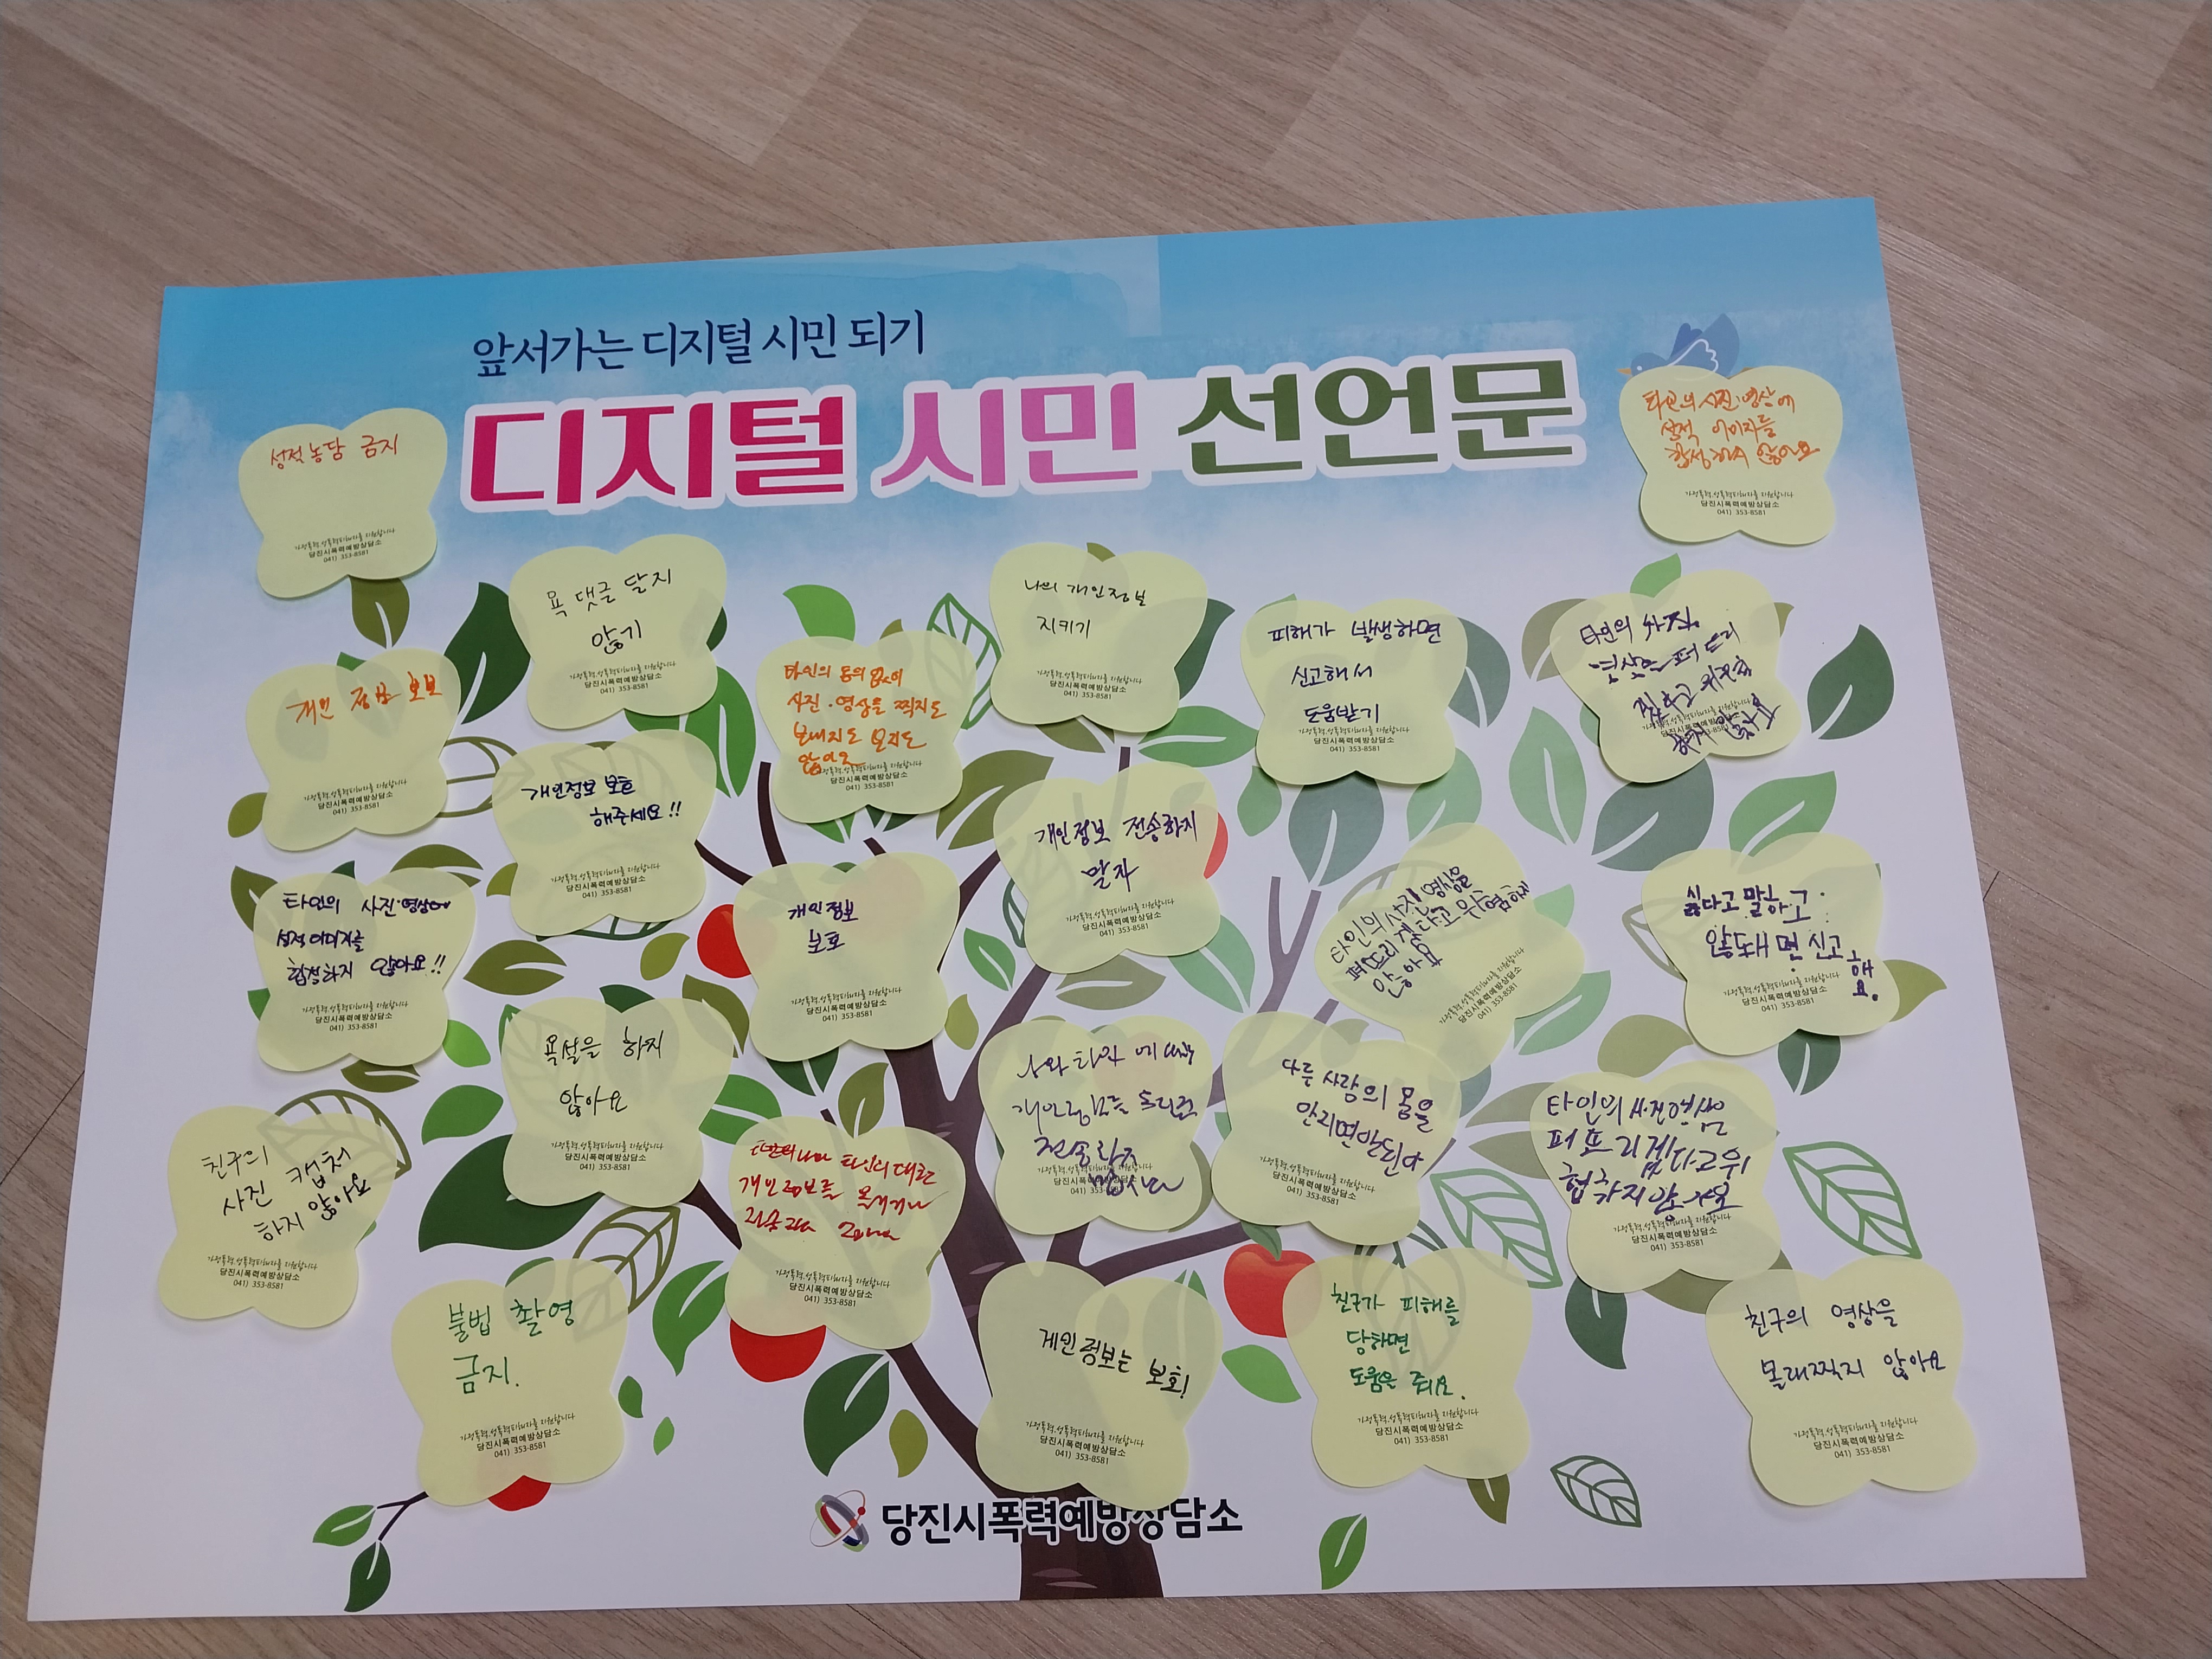 앞서가는 디지털 시민 되기
디지털 시민 선언문
성적농담 금지
가정폭력.성폭력피해자를 지원합니다
당진시폭력예방상담소
041) 353-8581
타인의 사진·영상에
성적 이미지를
합성하지 않아요
가정폭력.성폭력피해자를 지원합니다
당진시폭력예방상담소
041) 353-8581
욕 댓글 달지
않기
가정폭력.성폭력피해자를 지원합니다
당진시폭력예방상담소
041) 353-8581
나의 개인정보
지키기
가정폭력.성폭력피해자를 지원합니다
당진시폭력예방상담소
041) 353-8581
피해가 발생하면
신고해서
도움받기
가정폭력.성폭력피해자를 지원합니다
당진시폭력예방상담소
041) 353-8581
타인의 사진
영상 퍼뜨리
하지 않아요
개인 정보 보호
가정폭력.성폭력피해자를 지원합니다
당진시폭력예방상담소
041) 353-8581
타인의 동의 없이
사진·영상을 찍지도
보내지도 보지도
않아요
가정폭력.성폭력피해자를 지원합니다
당진시폭력예방상담소
041) 353-8581
개인정보 보호
해주세요!!
가정폭력.성폭력피해자를 지원합니다
당진시폭력예방상담소
041) 353-8581
개인정보 전송하지
말자
가정폭력.성폭력피해자를 지원합니다
당진시폭력예방상담소
041) 353-8581
타인의 사진·영상에
성적이미지를
합성하지 않아요!!
가정폭력.성폭력피해자를 지원합니다
당진시폭력예방상담소
041) 353-8581
개인정보
보호
가정폭력.성폭력피해자를 지원합니다
당진시폭력예방상담소
041) 353-8581
타인의 사진 영상을
퍼뜨리겠다고 위협하지
않아요
가정폭력.성폭력피해자를 지원합니다
당진시폭력예방상담소
041) 353-8581
싫다고 말하고
않돼면 신고해
요.
가정폭력.성폭력피해자를 지원합니다
당진시폭력예방상담소
041) 353-8581
욕설을 하지
않아요
가정폭력.성폭력피해자를 지원합니다
당진시폭력예방상담소
041) 353-8581
나와 타인에
전송하지
다른 사람의 몸을
만지면안된다
가정폭력.성폭력피해자를 지원합니다
당진시폭력예방상담소
041) 353-8581
타인의 사진영상
퍼프리겠다고위
협하지않아요
가정폭력.성폭력피해자를 지원합니다
당진시폭력예방상담소
041) 353-8581
친구의
사진 캡처
하지 않아요
가정폭력.성폭력피해자를 지원합니다
당진시폭력예방상담소
041) 353-8581
타인의 대한
개인정보를
가정폭력.성폭력피해자를 지원합니다
당진시폭력예방상담소
041) 353-8581
불법 촬영
금지.
가정폭력.성폭력피해자를 지원합니다
당진시폭력예방상담소
041) 353-8581
게인정보는 보호!
가정폭력.성폭력피해자를 지원합니다
당진시폭력예방상담소
041) 353-8581
친구가 피해를
당하면
도움은 줘요.
가정폭력.성폭력피해자를 지원합니다
당진시폭력예방상담소
041) 353-8581
친구의 영상을
몰래찍지 않아요
가정폭력.성폭력피해자를 지원합니다
당진시폭력예방상담소
041) 353-8581
당진시폭력예방상담소